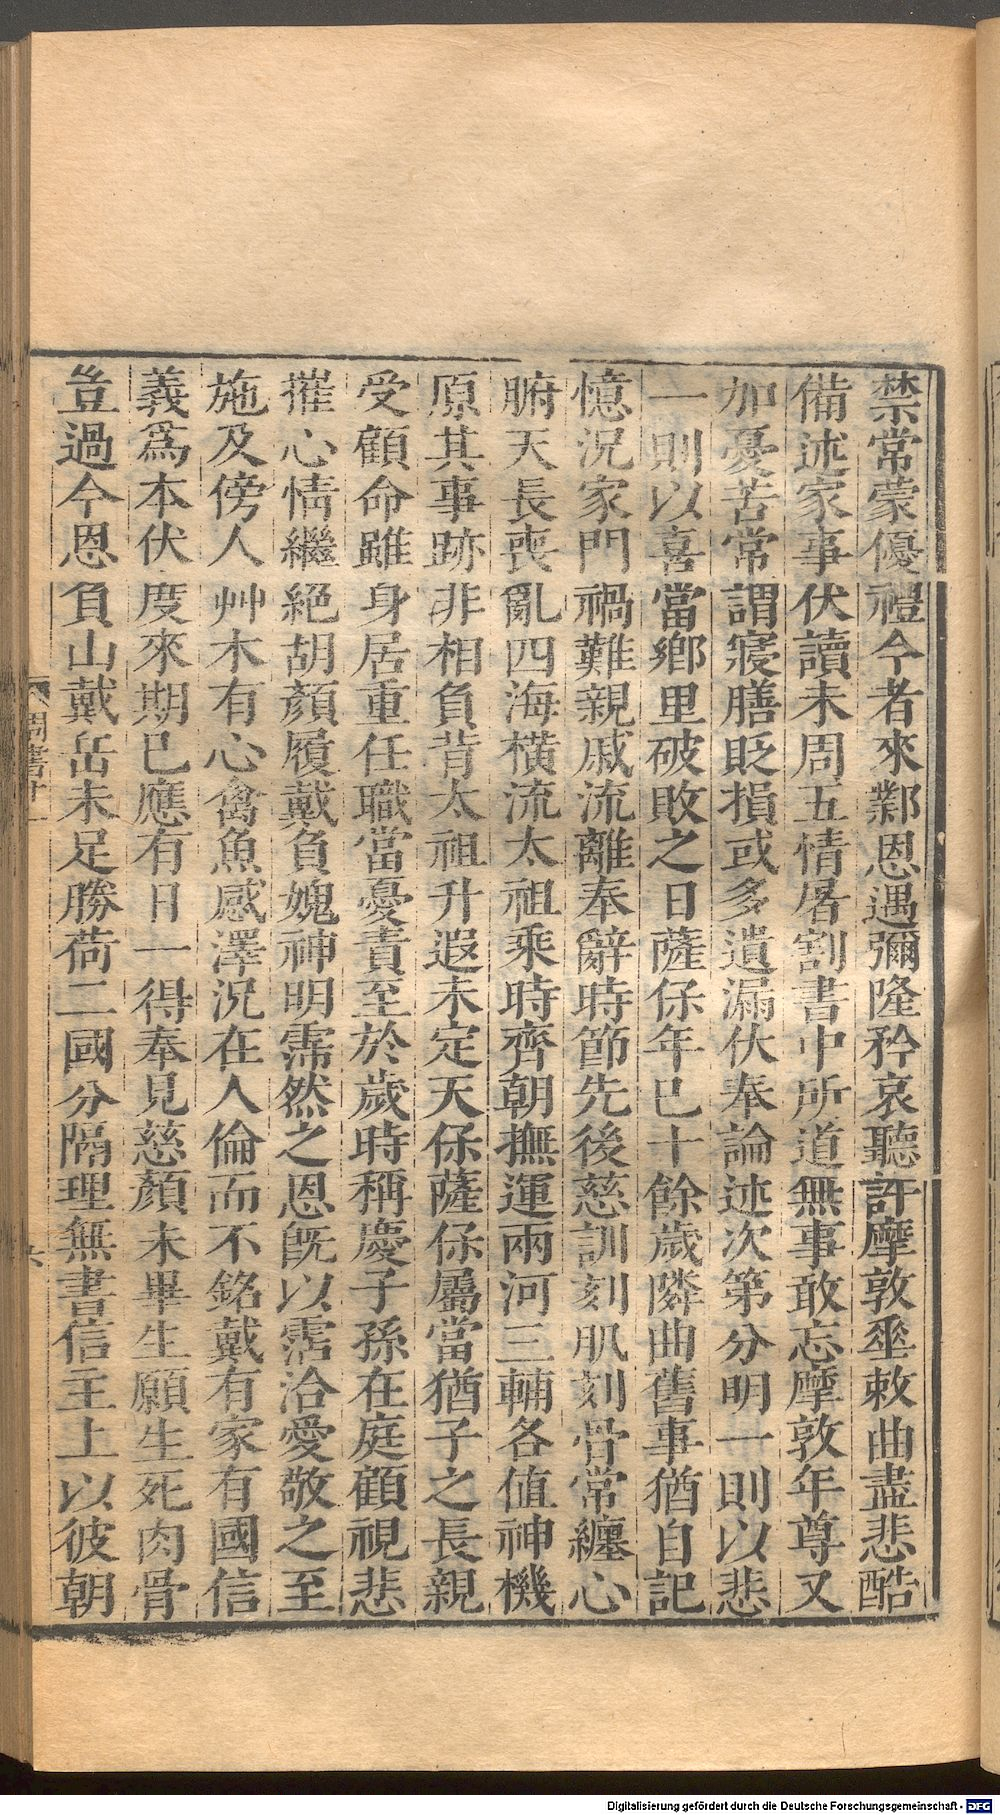 禁常蒙優禮今者來鄴恩遇彌隆矜哀聽許摩敦垂敕曲盡悲酷
備述家事伏讀未周五情屠割書中所道無事敢忘摩敦年尊又
加憂苦常謂寢膳貶損或多遺漏伏奉論述次第分明一則以悲
一則以喜當鄉里破敗之日薩保年已十餘歲隣曲舊事猶自記
憶況家門禍難親戚流離奉辭時節先後慈訓刻肌刻骨常纏心
腑天長喪亂四海橫流太祖乘時齊朝撫運兩河三輔各值神機
原其事跡非相負背太祖升遐未定天保薩保屬當猶子之長親
受顧命雖身居重任職當憂責至於歲時稱慶子孫在庭顧視悲
摧心情繼絕胡顏履戴負媿神明霈然之恩旣以霑洽愛敬之至
施及傍人艸木有心禽魚感澤況在人倫而不銘戴有家有國信
義爲本伏度來期已應有日一得奉見慈顏未畢生願生死肉骨
豈過今恩負山戴岳未足勝荷二國分隔理無書信主上以彼朝
周書十一
六
Digitalisierung gefördert durch die Deutsche Forschungsgemeinschaft - DFG